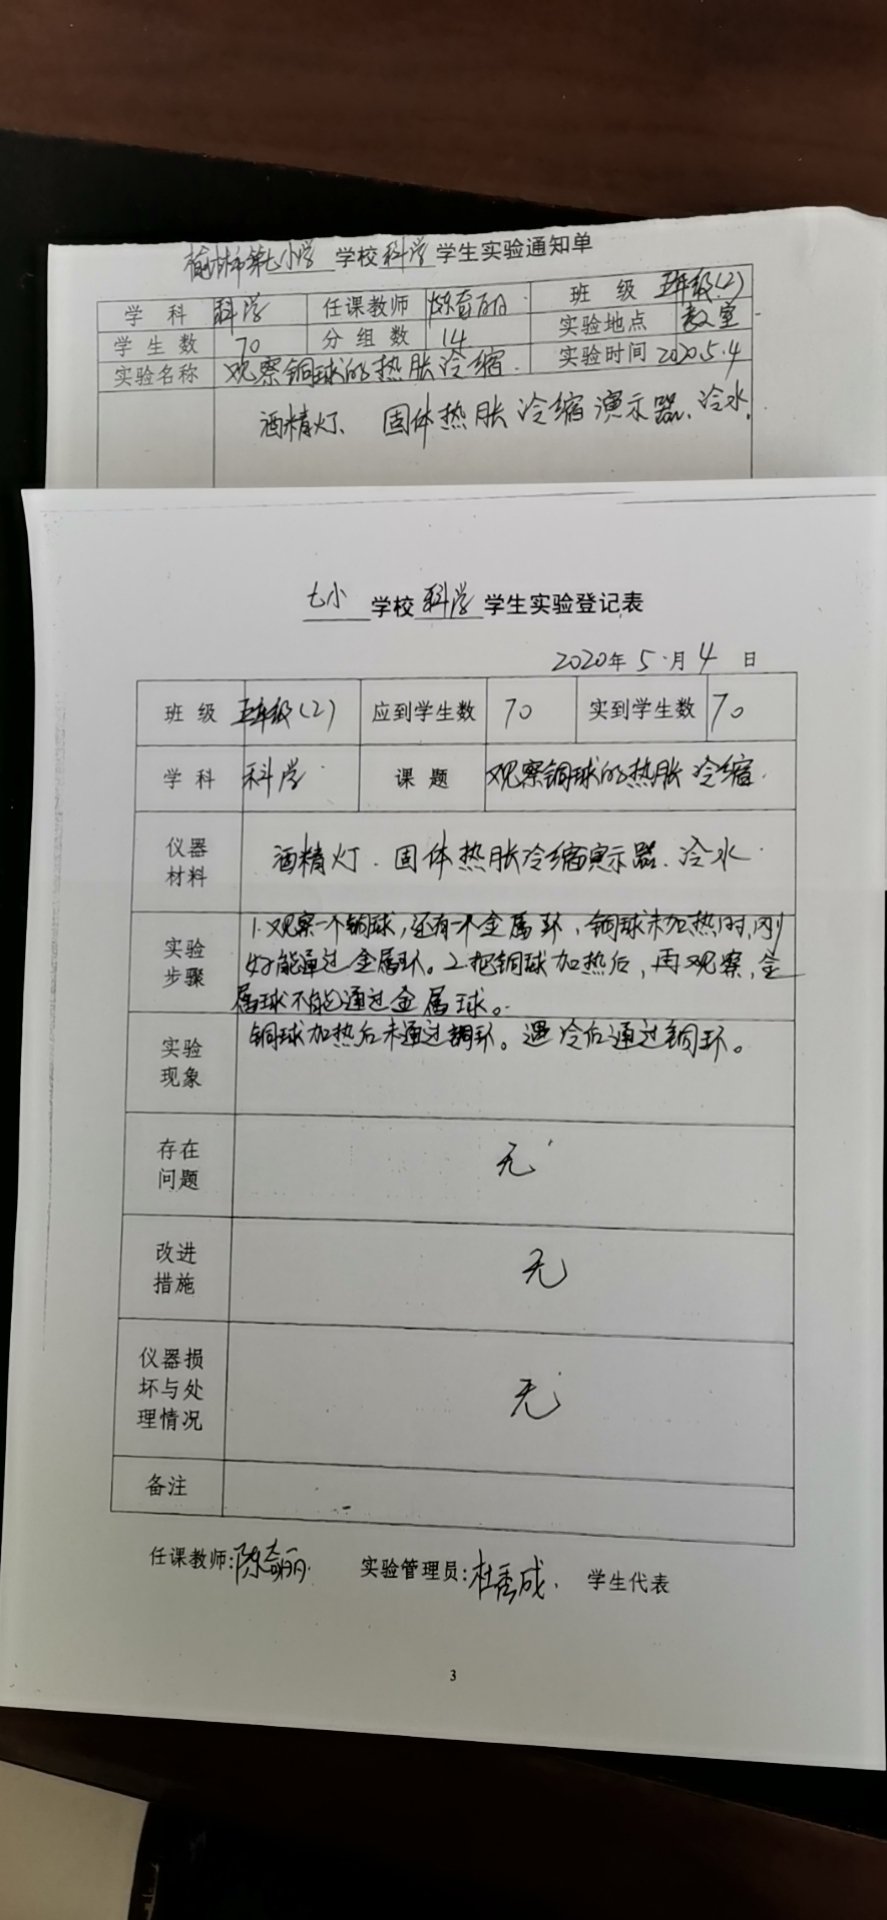 榆林市第七小学 学校 科学 学生实验通知单
学科 科学 任课教师 陈奇丽 班级 五年级(2)
学生数 70 分组数 14 实验地点 教室
实验名称 观察铜球的热胀冷缩. 实验时间 2020.5.4
酒精灯、固体热胀冷缩演示器、冷水.
七小 学校 科学 学生实验登记表
2020年 5 月 4 日
班级 五年级(2) 应到学生数 70 实到学生数 70
学科 科学 课题 观察铜球的热胀冷缩.
仪器材料 酒精灯、固体热胀冷缩演示器、冷水
1.观察一个铜球,还有一个金属环,铜球未加热时,刚
实验步骤 好能通过金属环。2.把铜球加热后,再观察,金
属球不能通过金属球。
实验现象 铜球加热后未通过铜环。遇冷后通过铜环。
存在问题 无
改进措施 无
仪器损坏与处理情况 无
备注
任课教师:陈奇丽. 实验管理员:杜秀成. 学生代表
3